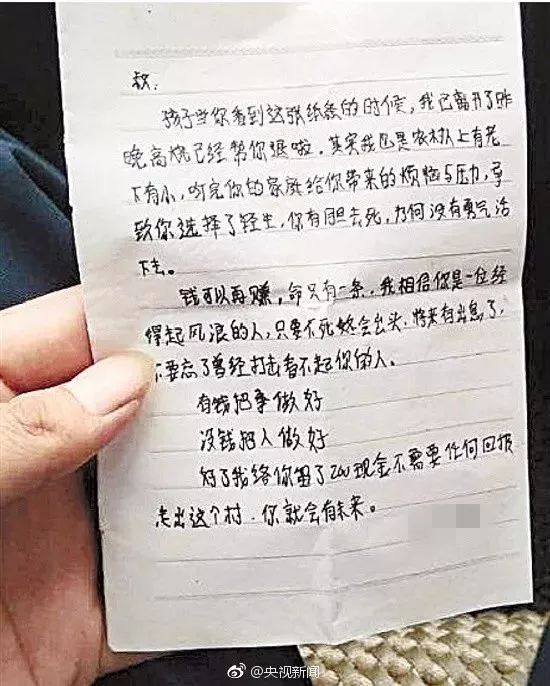 叔:
孩子当你看到这张纸条的时候,我已离开了昨
晚高烧已经帮你退啦。其实我也是农村人上有老
下有小,听完你的家庭给你带来的烦恼与压力,导
致你选择了轻生,你有胆去死,为何没有勇气活
下去。
钱可以再赚,命只有一条.我相信你是一位经
得起风浪的人,只要不死终会出头.将来有出息了,
不要忘了曾经打击看不起你的人。
有钱把事做好
没钱把人做好
好了我给你留了200现金不需要任何回报
走出这个村.你就会有未来。
@央视新闻